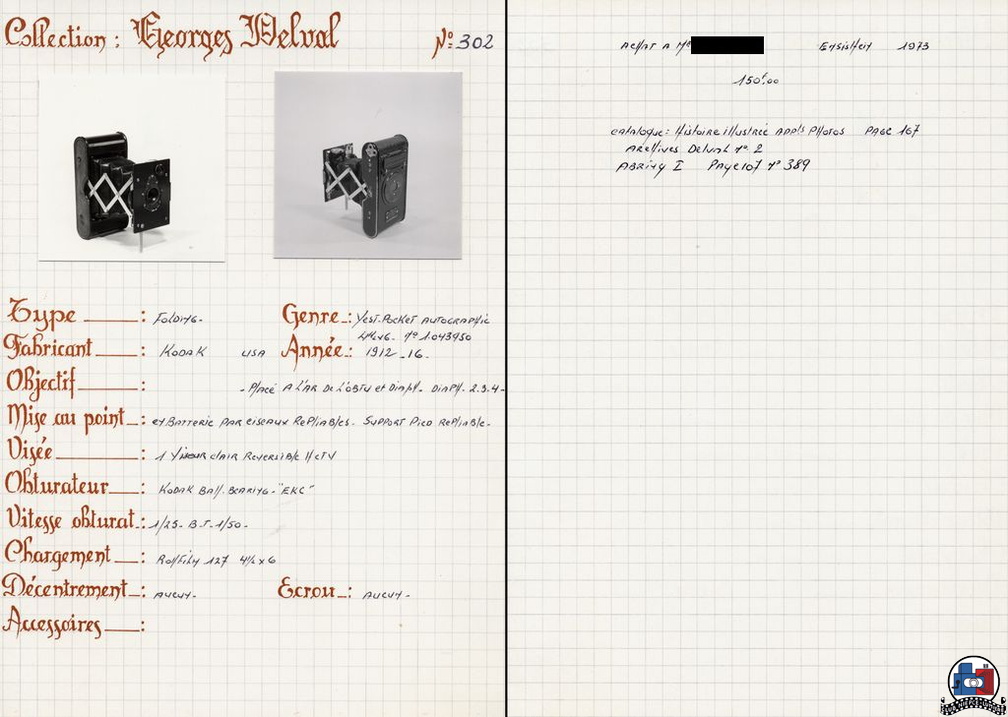 Collection : Georges Delval Nº 302
Type : Folding-
Genre : Vest-Pocket Autographic
4½x6- nº 1.043950
Fabricant : Kodak USA
Année : 1912-16-
Objectif : - Placé A L'AR De L'obtu et Diaph- Diaph. 2.3.4-
Mise au point : et Batterie par ciseaux Repliables- Support Pied Repliable-
Visée : 1 Viseur clair Reversible H et V
Obturateur : Kodak Ball-Bearing- "EKC"
Vitesse obturat. : 1/25- B-T-1/50-
Chargement : Rollfilm 127 4½x6
Décentrement : Aucun-
Ecrou : Aucun-
Accessoires :
Achat A Mr Ensisheim 1973
150f,00
catalogue : Histoire illustrée App!s Photos Page 167
Archives Delval nº 2
Abring I Page 107 nº 389